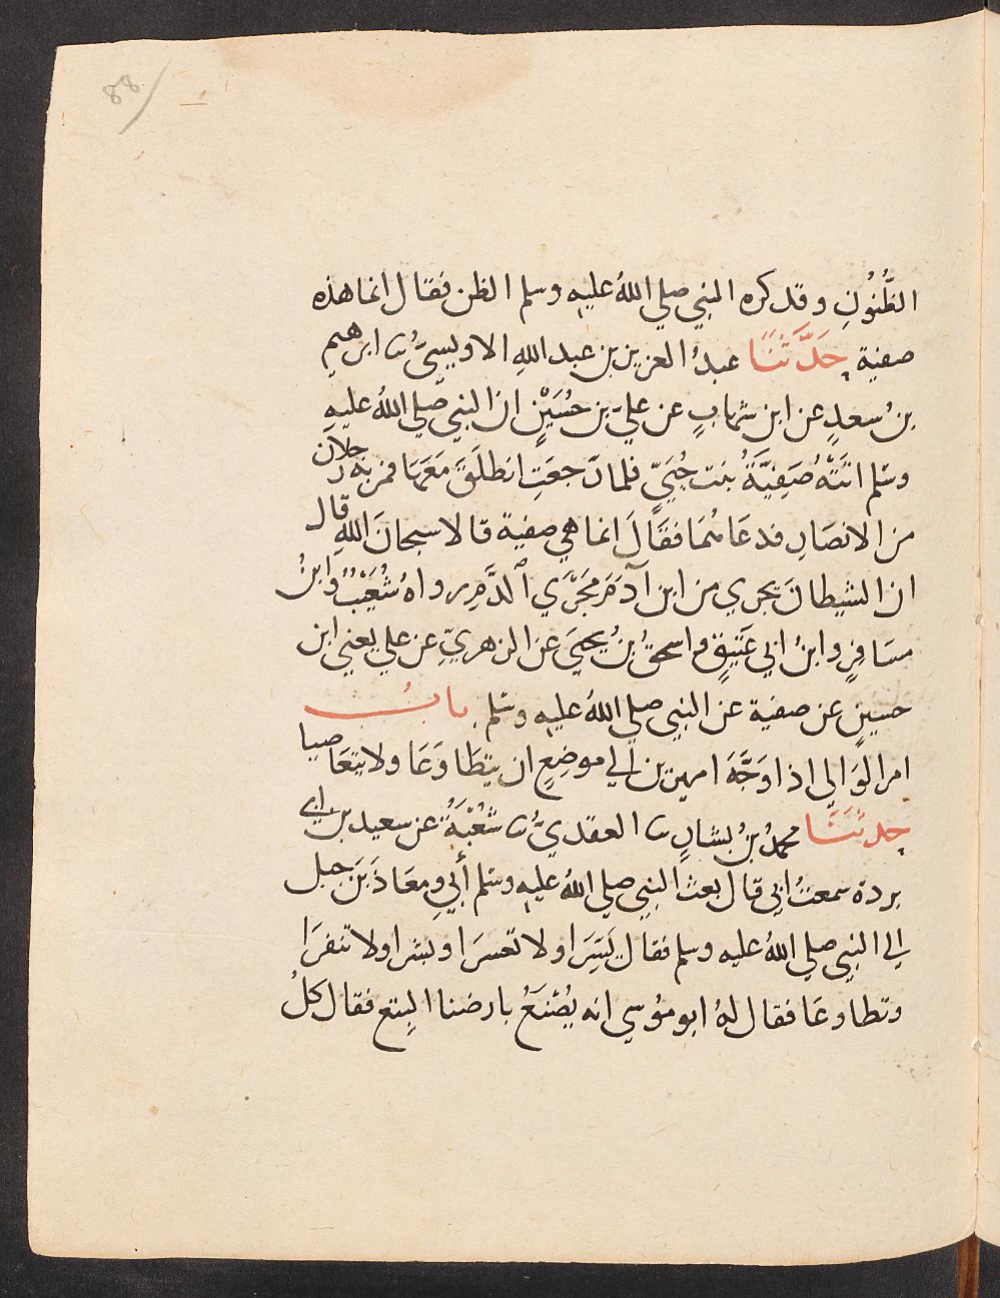 88
الظُّنُونِ وقد كره النبي صلي اللهُ عليهِ وسلم الظن فقال انما هذه
صفية حَدَّثَنَا عبدُ العزيز بن عبد اللهِ الاويسيُّ ثنا ابرهيم
بنُ سعدٍ عن ابن شهابٍ عن عليّ بن حُسَيْنٍ ان النبي صلي اللهُ عليهِ
وسلم اتَتْهُ صَفِيَّةُ بنت حُيَيٍّ فلما رَجعَتِ انطلَقَ مَعَهَا فمر به رجلان
من الانصَارِ فدعَاهُمَا فقَالَ انما هي صفية قالا سبحانَ اللهِ قال
ان الشيطانَ يجري من ابن آدَمَ مَجْرَي الدَّمِ رواهُ شُعَيْبٌ وابنُ
مسَافِرٍ وابنُ ابي عَتيقٍ واسحقُ بنُ يحييَ عن الزهريِّ عن علي يعني ابن
حسينٍ عن صفية عن النبي صلي اللهُ عليهِ وسلم بابُ
امر الوَالي اذا وَجَّهَ اميرين الي موضِعٍ ان يتطَاوَعَا ولا يتعَاصيا
حدثنَا محمدُ بنُ بشارٍ ثنا العقديُّ ثنا شُعْبَةُ عن سعيد بن ابي
بردة سمعتُ ابي قال بعث النبي صلي اللهُ عليهِ وسلم أَبي ومعَاذَ بنَ جبل
الي النبي صلي اللهُ عليه وسلم فقال يَسِّرَا ولا تعسرَا وبشرا ولا تنفرَا
وتطاوعَا فقال لهُ ابو مُوسي انه يُصْنَعُ بارضنا البِتع فقال كلُ